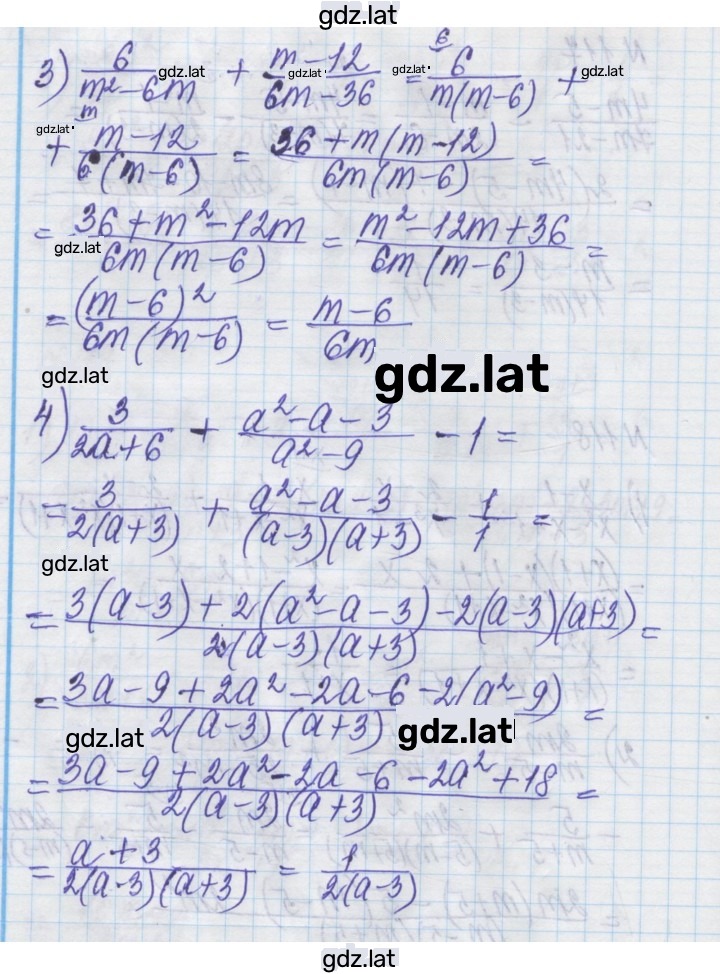 gdz.lat
3) 6/(m² - 6m) + (m - 12)/(6m - 36) = 6/ 6/(m(m - 6)) +
gdz.lat gdz.lat gdz.lat gdz.lat
+ m/ (m - 12)/(6(m - 6)) = (36 + m(m - 12))/(6m(m - 6)) =
gdz.lat
= (36 + m² - 12m)/(6m(m - 6)) = (m² - 12m + 36)/(6m(m - 6)) =
gdz.lat
= (m - 6)²/(6m(m - 6)) = (m - 6)/(6m)
gdz.lat gdz.lat
4) 3/(2a + 6) + (a² - a - 3)/(a² - 9) - 1 =
= 3/(2(a + 3)) + (a² - a - 3)/((a - 3)(a + 3)) - 1/1 =
gdz.lat
= (3(a - 3) + 2(a² - a - 3) - 2(a - 3)(a + 3))/(2(a - 3)(a + 3)) =
= (3a - 9 + 2a² - 2a - 6 - 2(a² - 9))/(2(a - 3)(a + 3)) =
gdz.lat gdz.lat
= (3a - 9 + 2a² - 2a - 6 - 2a² + 18)/(2(a - 3)(a + 3)) =
= (a + 3)/(2(a - 3)(a + 3)) = 1/(2(a - 3))
gdz.lat